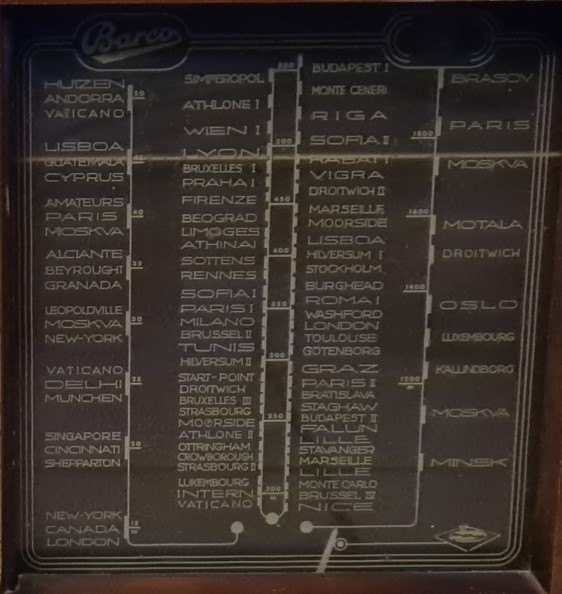 Barco
HUIZEN
ANDORRA
VATICANO
50
LISBOA
GUATEMALA
CYPRUS
AMATEURS
PARIS
MOSKVA
40
ALCIANTE
BEYROUGHT
GRANADA
LEOPOLDVILLE
MOSKVA
NEW-YORK
30
VATICANO
DELHI
MUNCHEN
25
SINGAPORE
CINCINNATI
SHEPPARTON
20
NEW-YORK
CANADA
LONDON
SIMFEROPOL
ATHLONE I
WIEN I
LYON
BRUXELLES I
PRAHA I
FIRENZE
BEOGRAD
LIMOGES
ATHINAI
SOTTENS
RENNES
SOFIA I
PARIS I
MILANO
BRUSSEL II
TUNIS
HILVERSUM II
START-POINT
DROITWICH
BRUXELLES III
STRASBOURG
MOORSIDE
ATHLONE II
OTTRINGHAM
CROWBOROUGH
STRASBOURG II
LUXEMBOURG
INTERN.
VATICANO
500
450
400
350
300
250
200
m
BUDAPEST I
MONTE CENERI
RIGA
SOFIA II
RABAT I
VIGRA
DROITWICH II
MARSEILLE
MOORSIDE
LISBOA
HILVERSUM I
STOCKHOLM
BURGHEAD
ROMA I
WASHFORD
LONDON
TOULOUSE
GÖTENBORG
GRAZ
PARIS II
BRATISLAVA
STAGHAW
BUDAPEST II
FALUN
LILLE
STAVANGER
MARSEILLE
LILLE
MONTE CARLO
BRUSSEL IV
NICE
1800
1600
1400
1200
m
BRASOV
PARIS
MOSKVA
MOTALA
DROITWICH
OSLO
LUXEMBOURG
KALUNDBORG
MOSKVA
MINSK